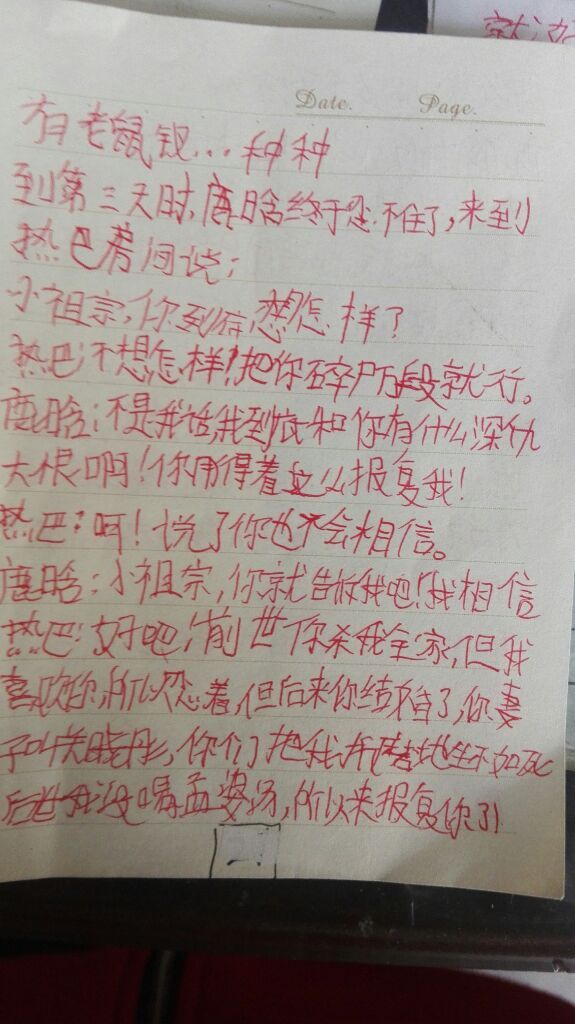 就没好
Date. Page.
有老鼠钗…种种
到第三天时,鹿晗终于忍不住了,来到
热巴房间说:
小祖宗,你到底想怎样?
热巴:不想怎样!把你碎尸万段就行。
鹿晗:不是我话我到底和你有什么深仇
大恨啊!你用得着这么报复我!
热巴:呵!说了你也不会相信。
鹿晗:小祖宗,你就告诉我吧!我相信
热巴:好吧!前世你杀我全家,但我
喜欢你,所以忍着,但后来你结婚了,你妻
子叫关晓彤,你们把我折磨地生不如死
后世我没喝孟婆汤,所以来报复你了!
一